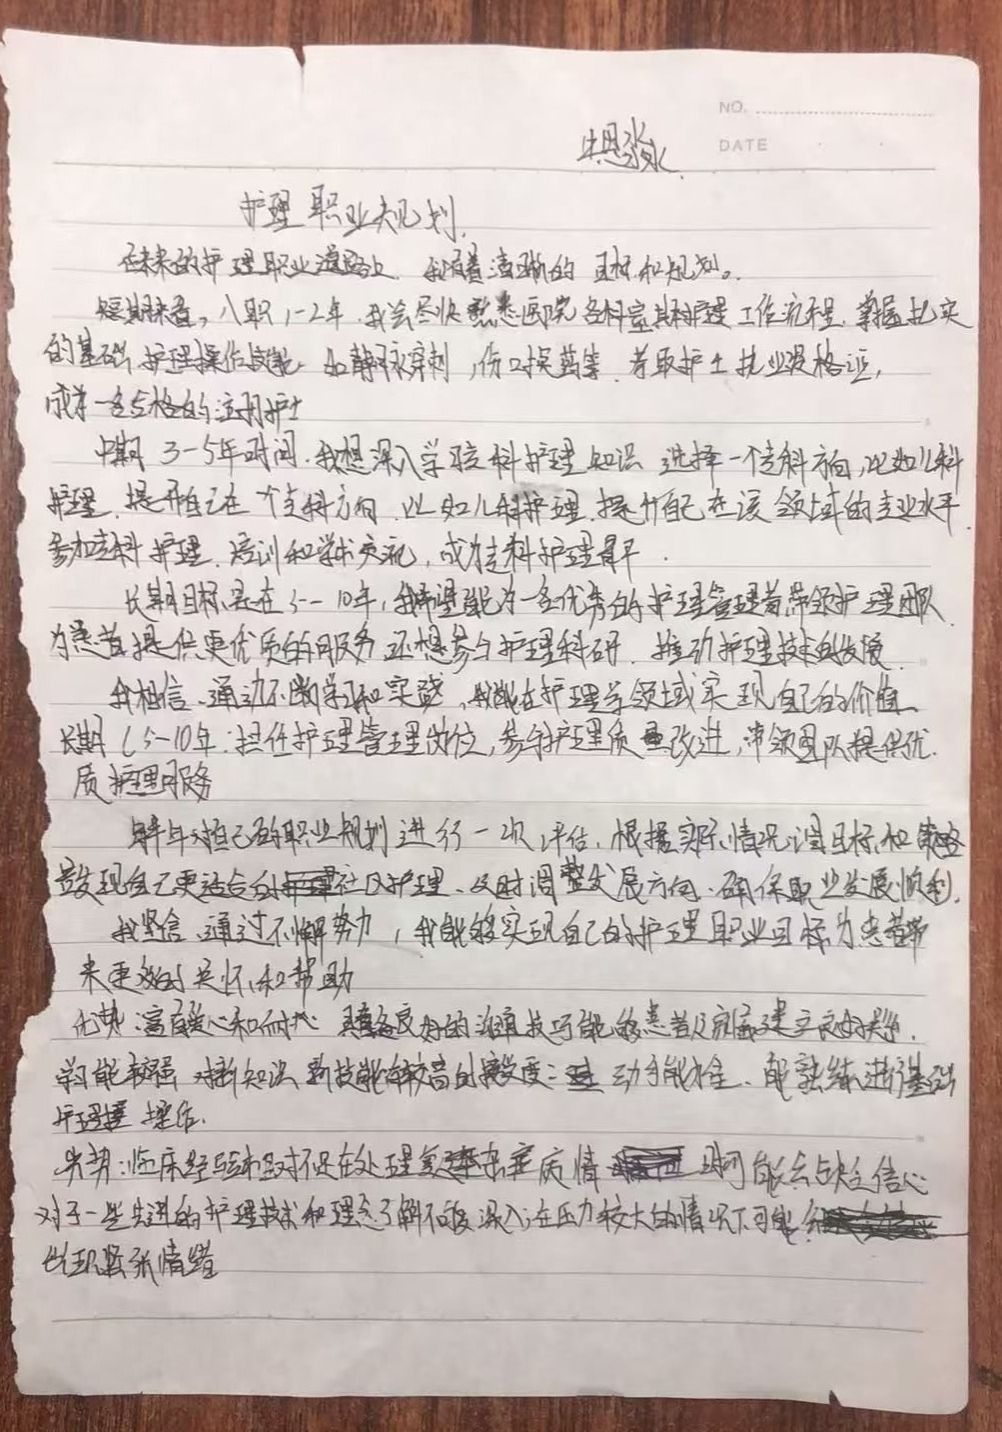 NO.
DATE
护理职业规划.
在未来的护理职业道路上,我有着清晰的目标和规划。
短期来看,入职1-2年,我会尽快熟悉医院各科室其科护理工作流程,掌握扎实
的基础护理操作技能,如静脉穿刺,伤口换药等,考取护士执业资格证,
成为一名合格的注册护士
中期3-5年时间,我想深入学习专科护理知识 选择一个专科方向,比如儿科
护理,提升自己在一个专科方向,比如儿科护理,提升自己在该领域的专业水平.
参加专科护理,培训和学术交流,成为专科护理骨干.
长期目标是在5--10年,我希望能成为一名优秀的护理管理者带领护理团队
为患者提供更优质的服务 还想参与护理科研,推动护理技术的发展.
我相信,通过不断学习和实践,我能在护理学领域实现自己的价值.
长期(5-10年:担任护理管理岗位,参与护理质量改进,带领团队提供优
质护理服务
每年对自己的职业规划进行一次评估,根据实际情况调目标和策略
若发现自己更适合社区护理,及时调整发展方向,确保职业发展顺利.
我坚信,通过不懈努力,我能够实现自己的护理职业目标为患者带
来更好的关怀和帮助
优势:富有爱心和耐心 具备良好的沟通技巧能够患者及家属建立良好关系.
学习能力较强 对新知识新技能有较高的接受度: 动手能力强,能熟练进行基础
护理操作.
劣势:临床经验相对不足在处理复杂病情时可能会缺乏信心
对于一些先进的护理技术和理念了解不够深入;在压力较大的情况下可能
出现紧张情绪